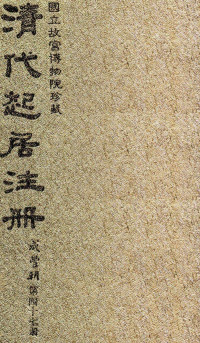 國立故宮博物院珍藏
清代起居注冊
咸豐朝 第四十七冊